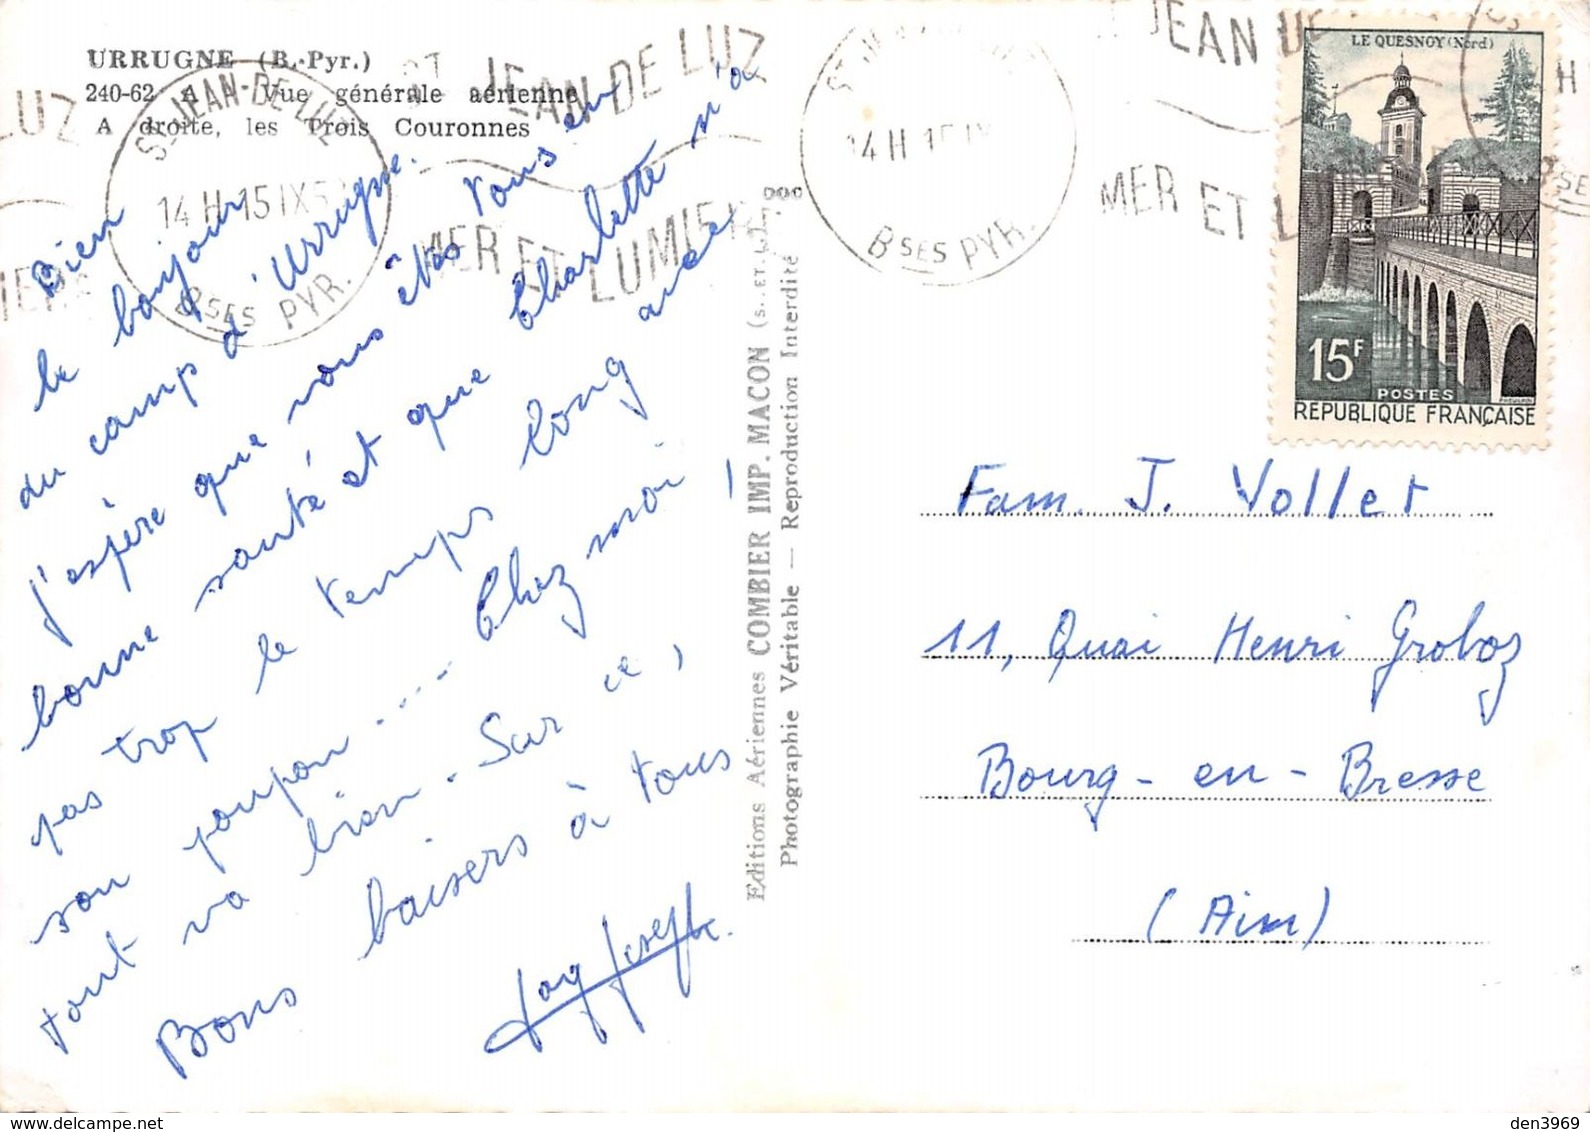 URRUGNE (B.-Pyr.)
240-62 A - Vue générale aérienne
A droite, les Trois Couronnes
ST JEAN DE LUZ
MER ET LUMIERE
ST-JEAN-DE-LUZ
14 H - 15 IX 5
BSES PYR.
14 H 15 IX
BSES PYR.
JEAN DE
MER ET L
LUZ
LE QUESNOY (Nord)
15F
POSTES
REPUBLIQUE FRANÇAISE
Bien
le bonjour
du camp d'Urrugne.
J'espère que vous êtes tous en
bonne santé et que Charlette n'a
pas trop le temps long avec
son poupon.... Chez moi,
tout va bien. Sur ce,
Bons baisers à tous
Joseph.
Editions Aériennes COMBIER IMP. MACON
Photographie Véritable — Reproduction Interdite
Fam. J. Vollet
11, Quai Henri Groboz
Bourg-en-Bresse
(Ain)
den3969